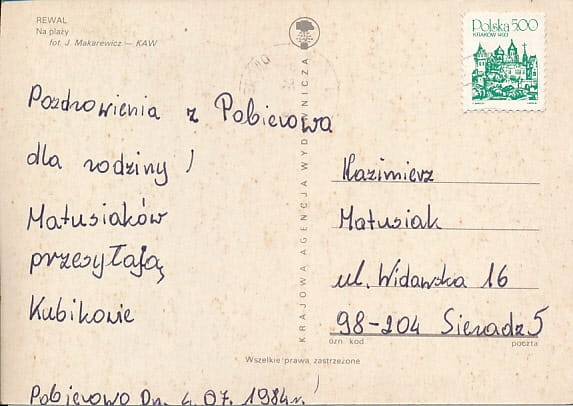 REWAL
Na plaży
fot. J. Makarewicz — KAW
Polska 500
KRAKÓW 1493
Pozdrowienia z Pobierowa
dla rodziny
Matusiaków
przesyłają
Kubikowie
Pobierowo Dn. 4.07.1984r.
KRAJOWA AGENCJA WYDAWNICZA
Kazimierz
Matusiak
ul. Widawska 16
98-204 Sieradz 5
ozn. kod. poczta
Wszelkie prawa zastrzeżone